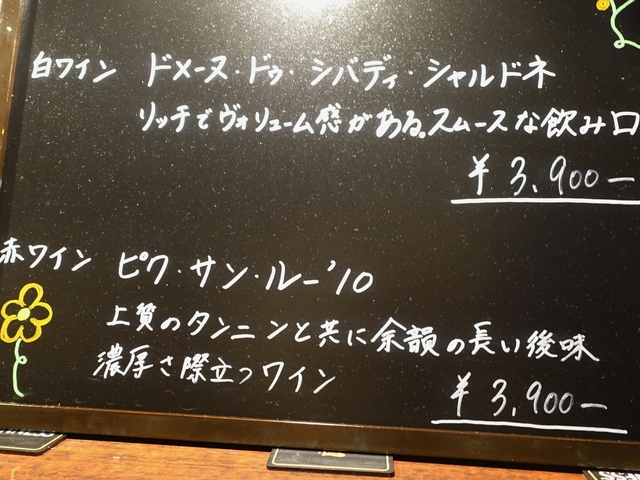 白ワイン ドメーヌ・ドゥ・シバディ・シャルドネ
リッチでヴォリューム感がある。スムースな飲み口
¥3,900ー
赤ワイン ピク・サン・ルー'10
上質のタンニンと共に余韻の長い後味
濃厚さ際立つワイン
¥3,900ー